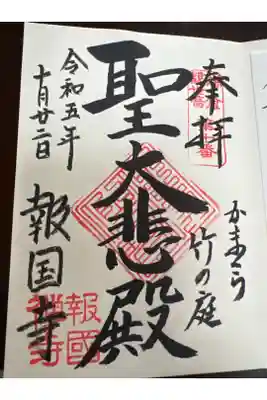 奉拝
かまくら
竹の庭
聖大悲殿
令和五年
十月廿二日
報国寺
報國
禪寺